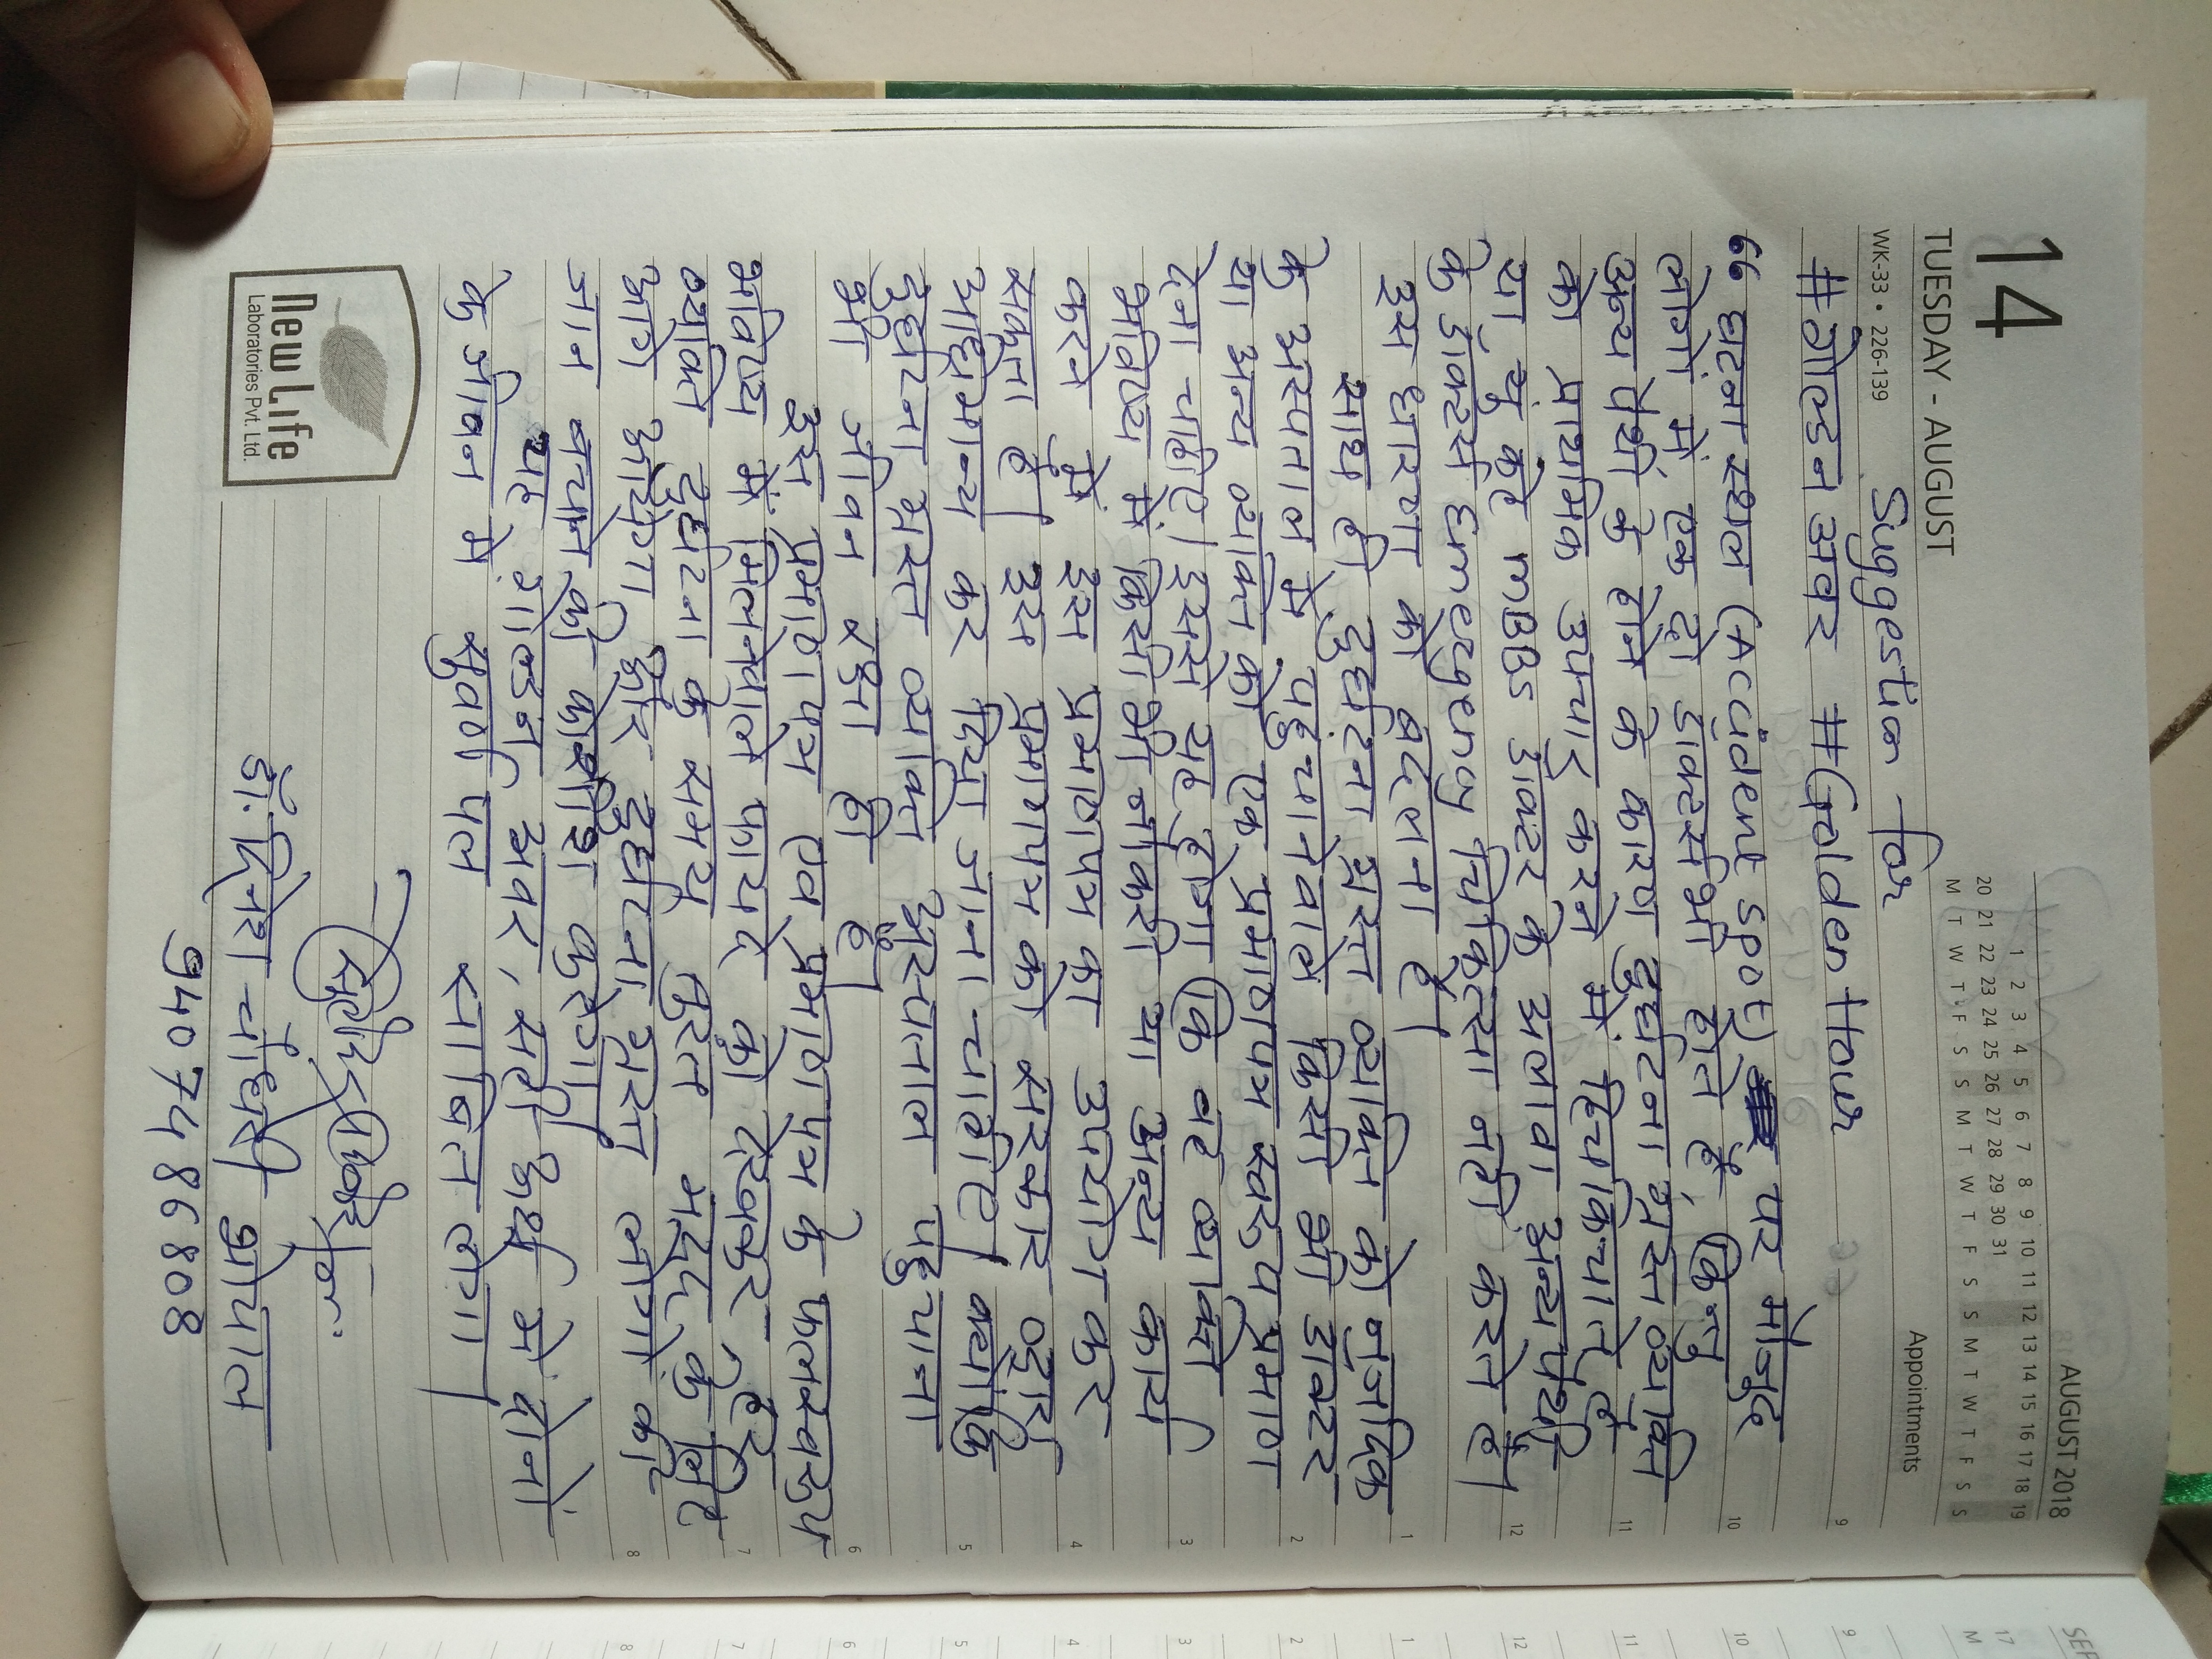 14
TUESDAY - AUGUST
WK-33 • 226-139
AUGUST 2018
1 2 3 4 5 6 7 8 9 10 11 12 13 14 15 16 17 18 19
20 21 22 23 24 25 26 27 28 29 30 31
M T W T F S S M T W T F S S M T W T F S S
Appointments
Suggestion for
#गोल्डन अवर #Golden Hour
“घटना स्थल (Accident Spot) पर मौजूद
लोगो में एक दो डाक्टर्स भी होते है, किन्तु
अन्य पेथी के होने के कारण दुर्घटना ग्रस्त व्यक्ति
को प्राथमिक उपचार करने में हिचकिचाते है
या यु कहे MBBS डाक्टर के अलावा अन्य पेथी
के डाक्टर्स Emergency चिकित्सा नही करते है।
इस धारणा को बदलना है।
साथ ही दुर्घटना ग्रस्त व्यक्ति को नजदिक
के अस्पताल में पहुचानेवाले किसी भी डाक्टर
या अन्य व्यक्ति को एक प्रमाणपत्र स्वरुप प्रमाण
देना चाहिए। इससे यह होगा कि वह व्यक्ति
भविष्य में किसी भी नौकरी या अन्य कार्य
करने में इस प्रमाणपत्र का उपयोग कर
सकता है। इस प्रमाणपत्र को सरकार द्वारा
अधिमान्य कर दिया जाना चाहिए। क्योकि
दुर्घटना ग्रस्त व्यक्ति अस्पताल पहुचाना
भी जीवन रक्षा ही है।
इस प्रमाणपत्र एवं प्रमाणपत्र के फलस्वरुप
भविष्य में मिलनेवाले फायदे को देखकर हर
व्यक्ति दुर्घटना के समय तुरन्त मदद के लिए
आगे आयेगा और दुर्घटना ग्रस्त लोगो की
जान बचाने की कोशीश करेगा।
यह गोल्डन अवर, सही अर्थ में दोनों
के जीवन में सुवर्ण पल साबित होगा।
डॉ. दिनेश चौधरी भोपाल
9407486808
New Life
Laboratories Pvt. Ltd.
9
10
11
12
1
2
3
4
5
6
7
8
SEP
M
17
9
10
11
12
1
2
3
4
5
6
7
8